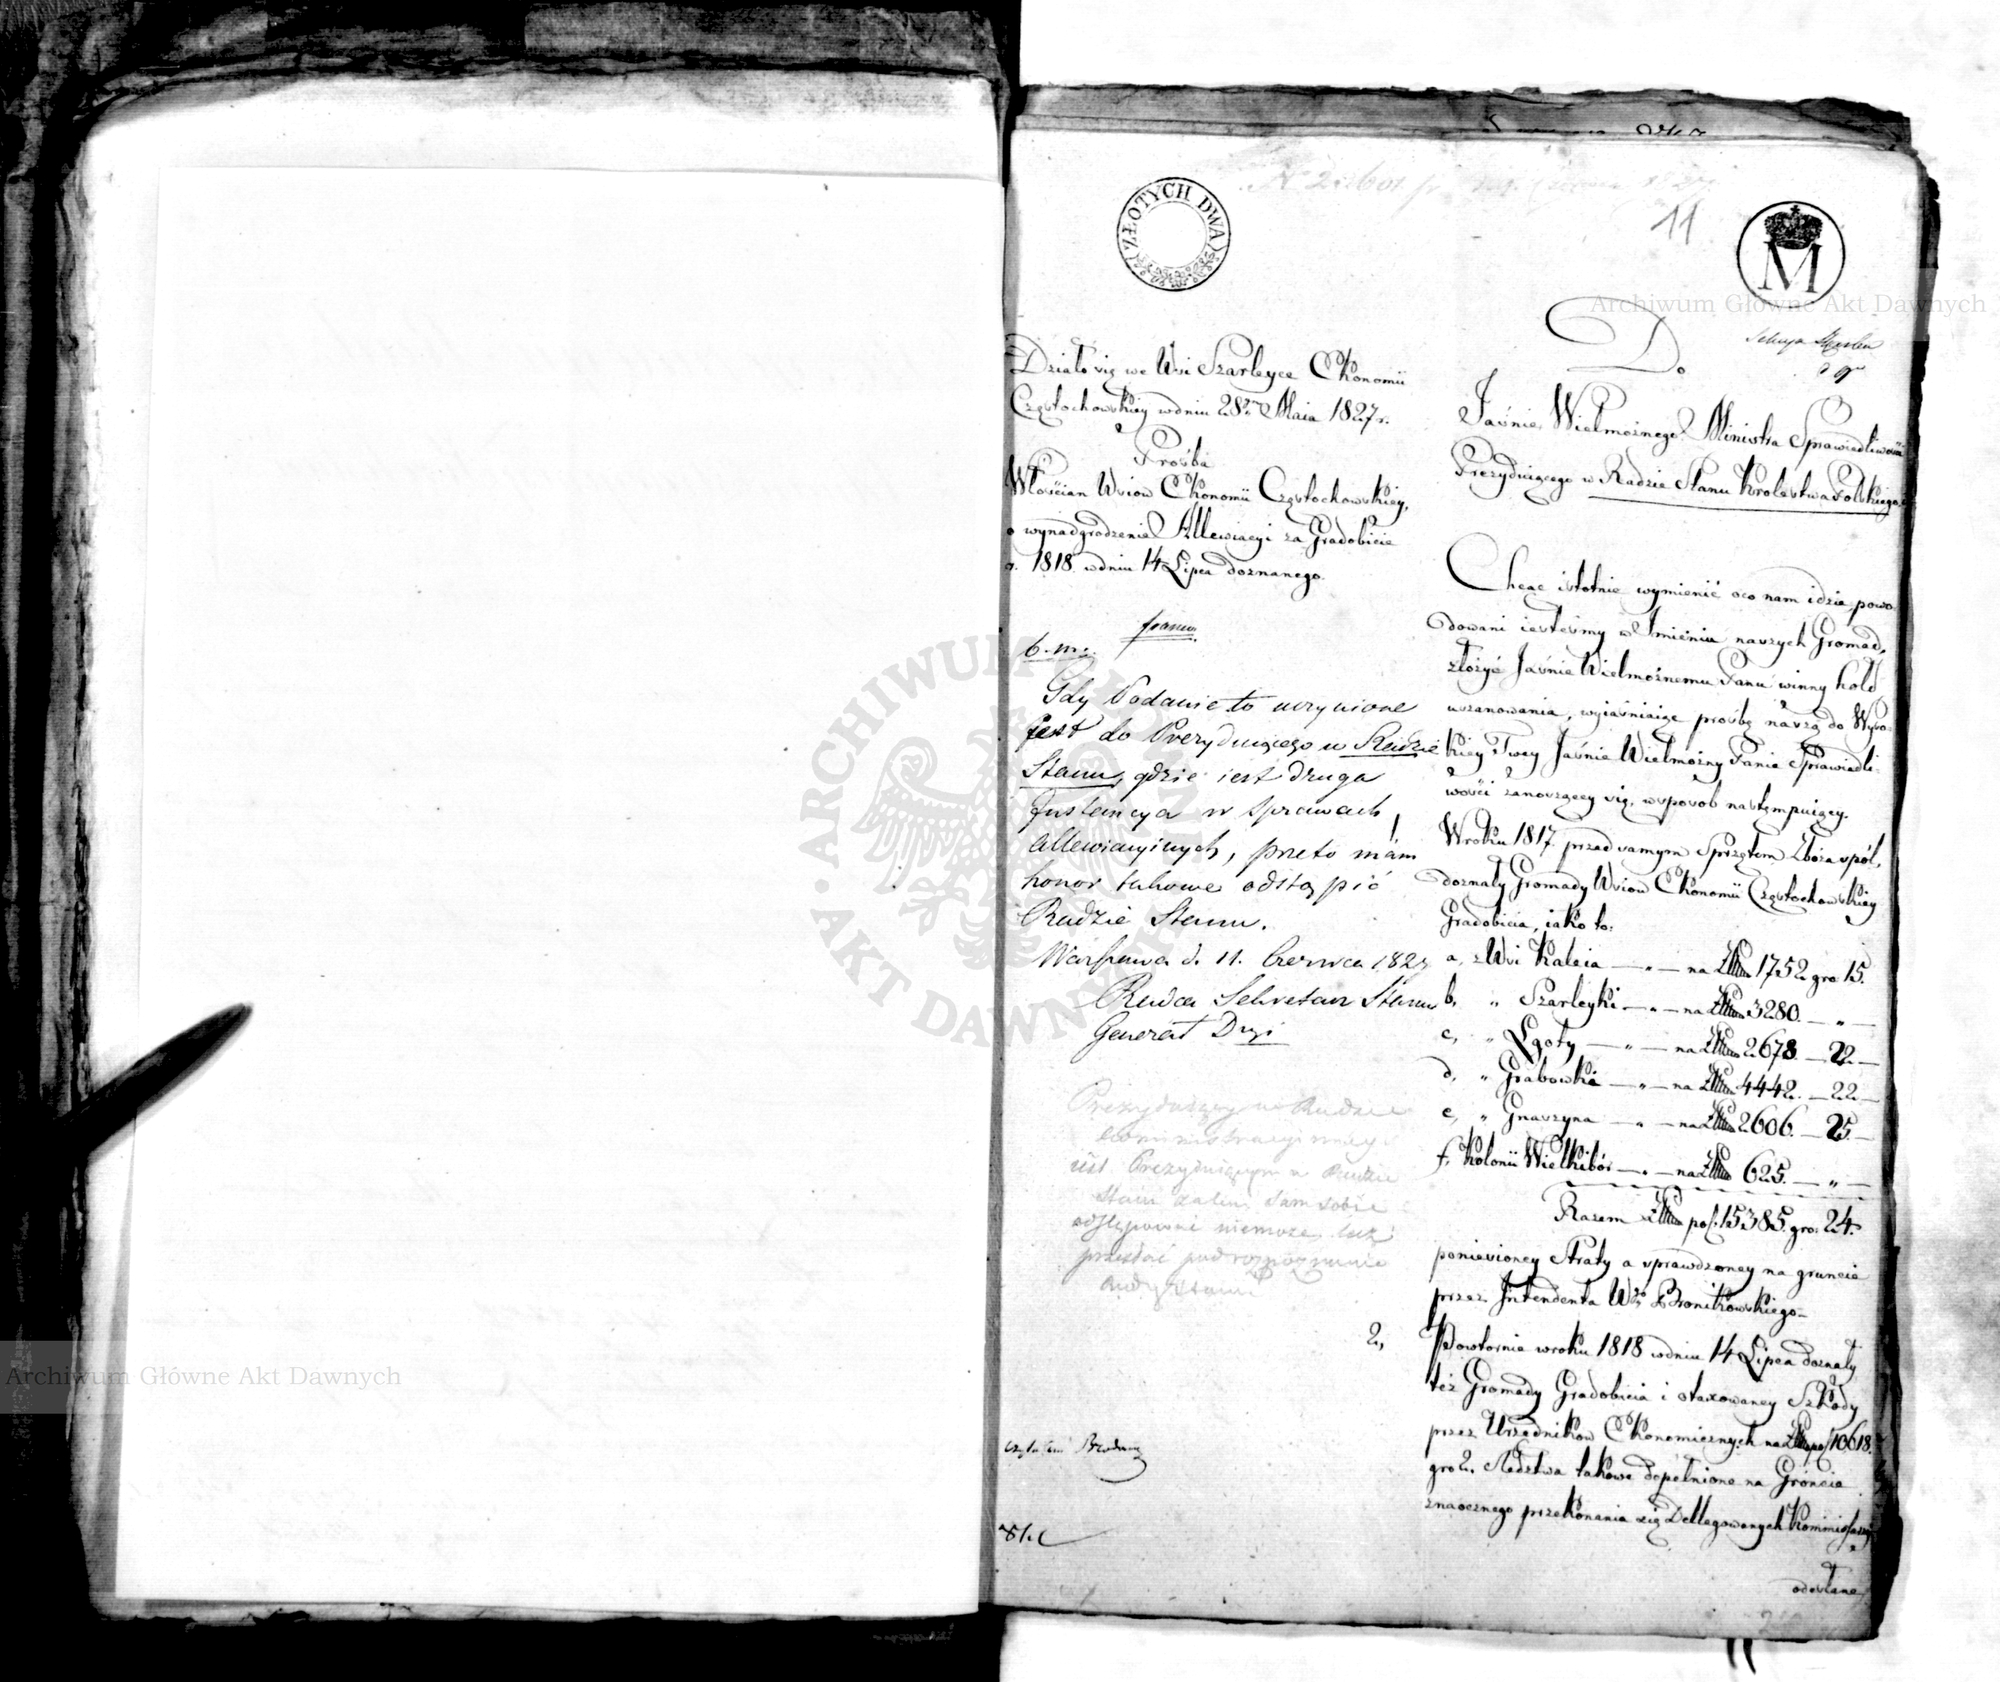 ZŁOTYCH DWA
11
M
Działo się we Wsi Szarleyce Ekonomii
Częstochowskiey w dniu 28 Maia 1827 r.
Prośba
Włościan Wsiow Ekonomii Częstochowskiey,
o wynadgrodzenie Allewiacyi za Gradobicie
r. 1818 w dniu 14 Lipca doznanego.
Gdy Podanie to uczynione
jest do Prezyduiącego w Radzie
Stanu, gdzie iest druga
Instancya w sprawach
allewiacyinych, przeto mam
honor takowe odstąpić
Radzie Stanu.
Warszawa d. 11. Czerwca 1827
Radca Sekretarz Stanu
Generał Dyi
Prezyduiący w Radzie
Administracyi
iest Prezyduiącym w Radzie
Stanu zatem sam sobie
odstępować niemoże, lecz
przesłać pod rozpoznanie
Rady Stanu
Do
Jaśnie Wielmożnego Ministra Sprawiedliwości
Prezyduiącego w Radzie Stanu Krolestwa Polskiego
Chcąc istotnie wymienić oco nam idzie, powo-
dowani iesteśmy w Imieniu naszych Gromad,
złożyć Jaśnie Wielmożnemu Panu winny hołd
uszanowania, wyiaśniaiąc prośbę naszą do Wyso-
kiey Twey Jaśnie Wielmożny Panie Sprawiedli-
wości zanoszącey się, wsposob następuiący.
Wroku 1817 przed samym Sprzętem Zboża spól,
doznały Gromady Wsiow Ekonomii Częstochowskiey
Gradobicia, iako to:
a, z Wsi Kaleia — „ — na 1752 gro 15.
b, „ Szarleyki — „ — na 3280. — „ —
c, „ Lgoty — „ — na 2678. — 22 —
d, „ Grabowka — „ — na 4442. — 22 —
e, „ Gnaszyna — „ — na 2606. — 25. —
f, Kolonii Wielkibór — „ — na 625. — „ —
Razem pol. 15385. gro. 24.
poniesioney Straty a sprawdzoney na gruncie
przez Intendenta Bronikowskiego
2, Powtornie wroku 1818 wdniu 14 Lipca doznały
też Gromady Gradobicia i otaxowaney Szkody
przez Urzędnikow Ekonomicznych na 10618.
gro 2. Sledztwa takowe dopełnione na Gróncie
znaocznego przekonania się Dellegowanych Kommissarzy
odesłane
Archiwum Główne Akt Dawnych
Archiwum Główne Akt Dawnych
ARCHIWUM GŁÓWNE AKT DAWNYCH